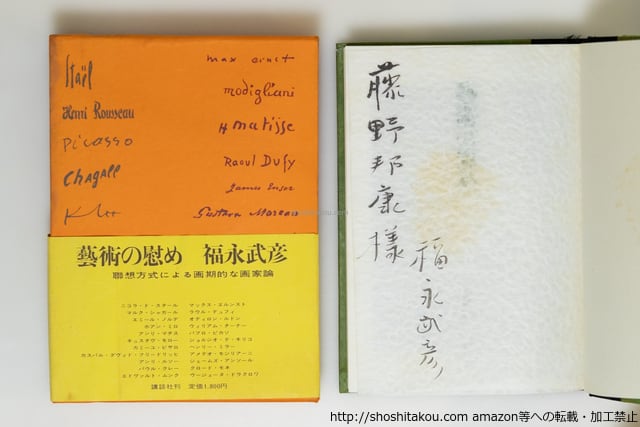 Staël
Henri Rousseau
Picasso
Chagall
Klee
max ernst
modigliani
H matisse
Raoul Dufy
James Ensor
Gustave Moreau
藝術の慰め 福永武彦
聯想方式による画期的な画家論
ニコラ・ド・スタール マックス・エルンスト
マルク・シャガール ラウル・デュフィ
エミール・ノルデ オディロン・ルドン
ホアン・ミロ ウィリアム・ターナー
アンリ・マチス パブロ・ピカソ
ギュスタヴ・モロー ジョルジオ・デ・キリコ
カミーユ・ピサロ ヘンリー・ミラー
カスパル・ダヴィッド・フリードリッヒ アメデオ・モジリアーニ
アンリ・ルソー ジェームズ・アンソール
パウル・クレー クロード・モネ
エドヴァルト・ムンク ウージェーヌ・ドラクロワ
講談社刊 定価1,800円
藤野邦康様
福永武彦
http://shoshitakou.com amazon等への転載・加工禁止